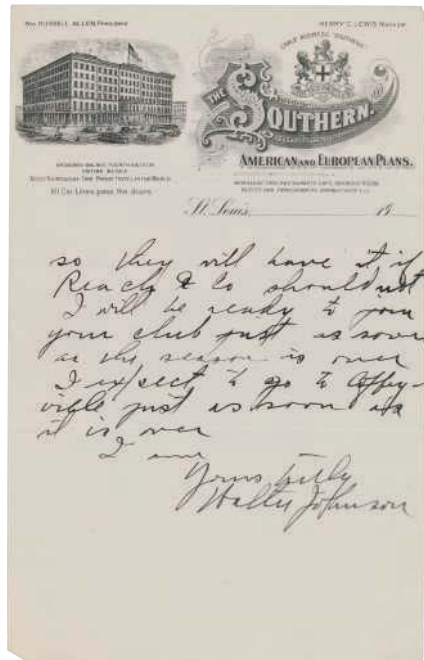 Wm RUSSELL ALLEN President
HENRY C. LEWIS Manager
CABLE ADDRESS "SOUTHERN"
THE SOUTHERN.
AMERICAN AND EUROPEAN PLANS.
All Car Lines pass the doors.
St. Louis, 19
so they will have it if
Reach & Co should not
I will be ready to join
your club just as soon
as the season is over
I expect to go to Coffey-
ville just as soon as
it is over
I am
Yours Truly
Walter Johnson